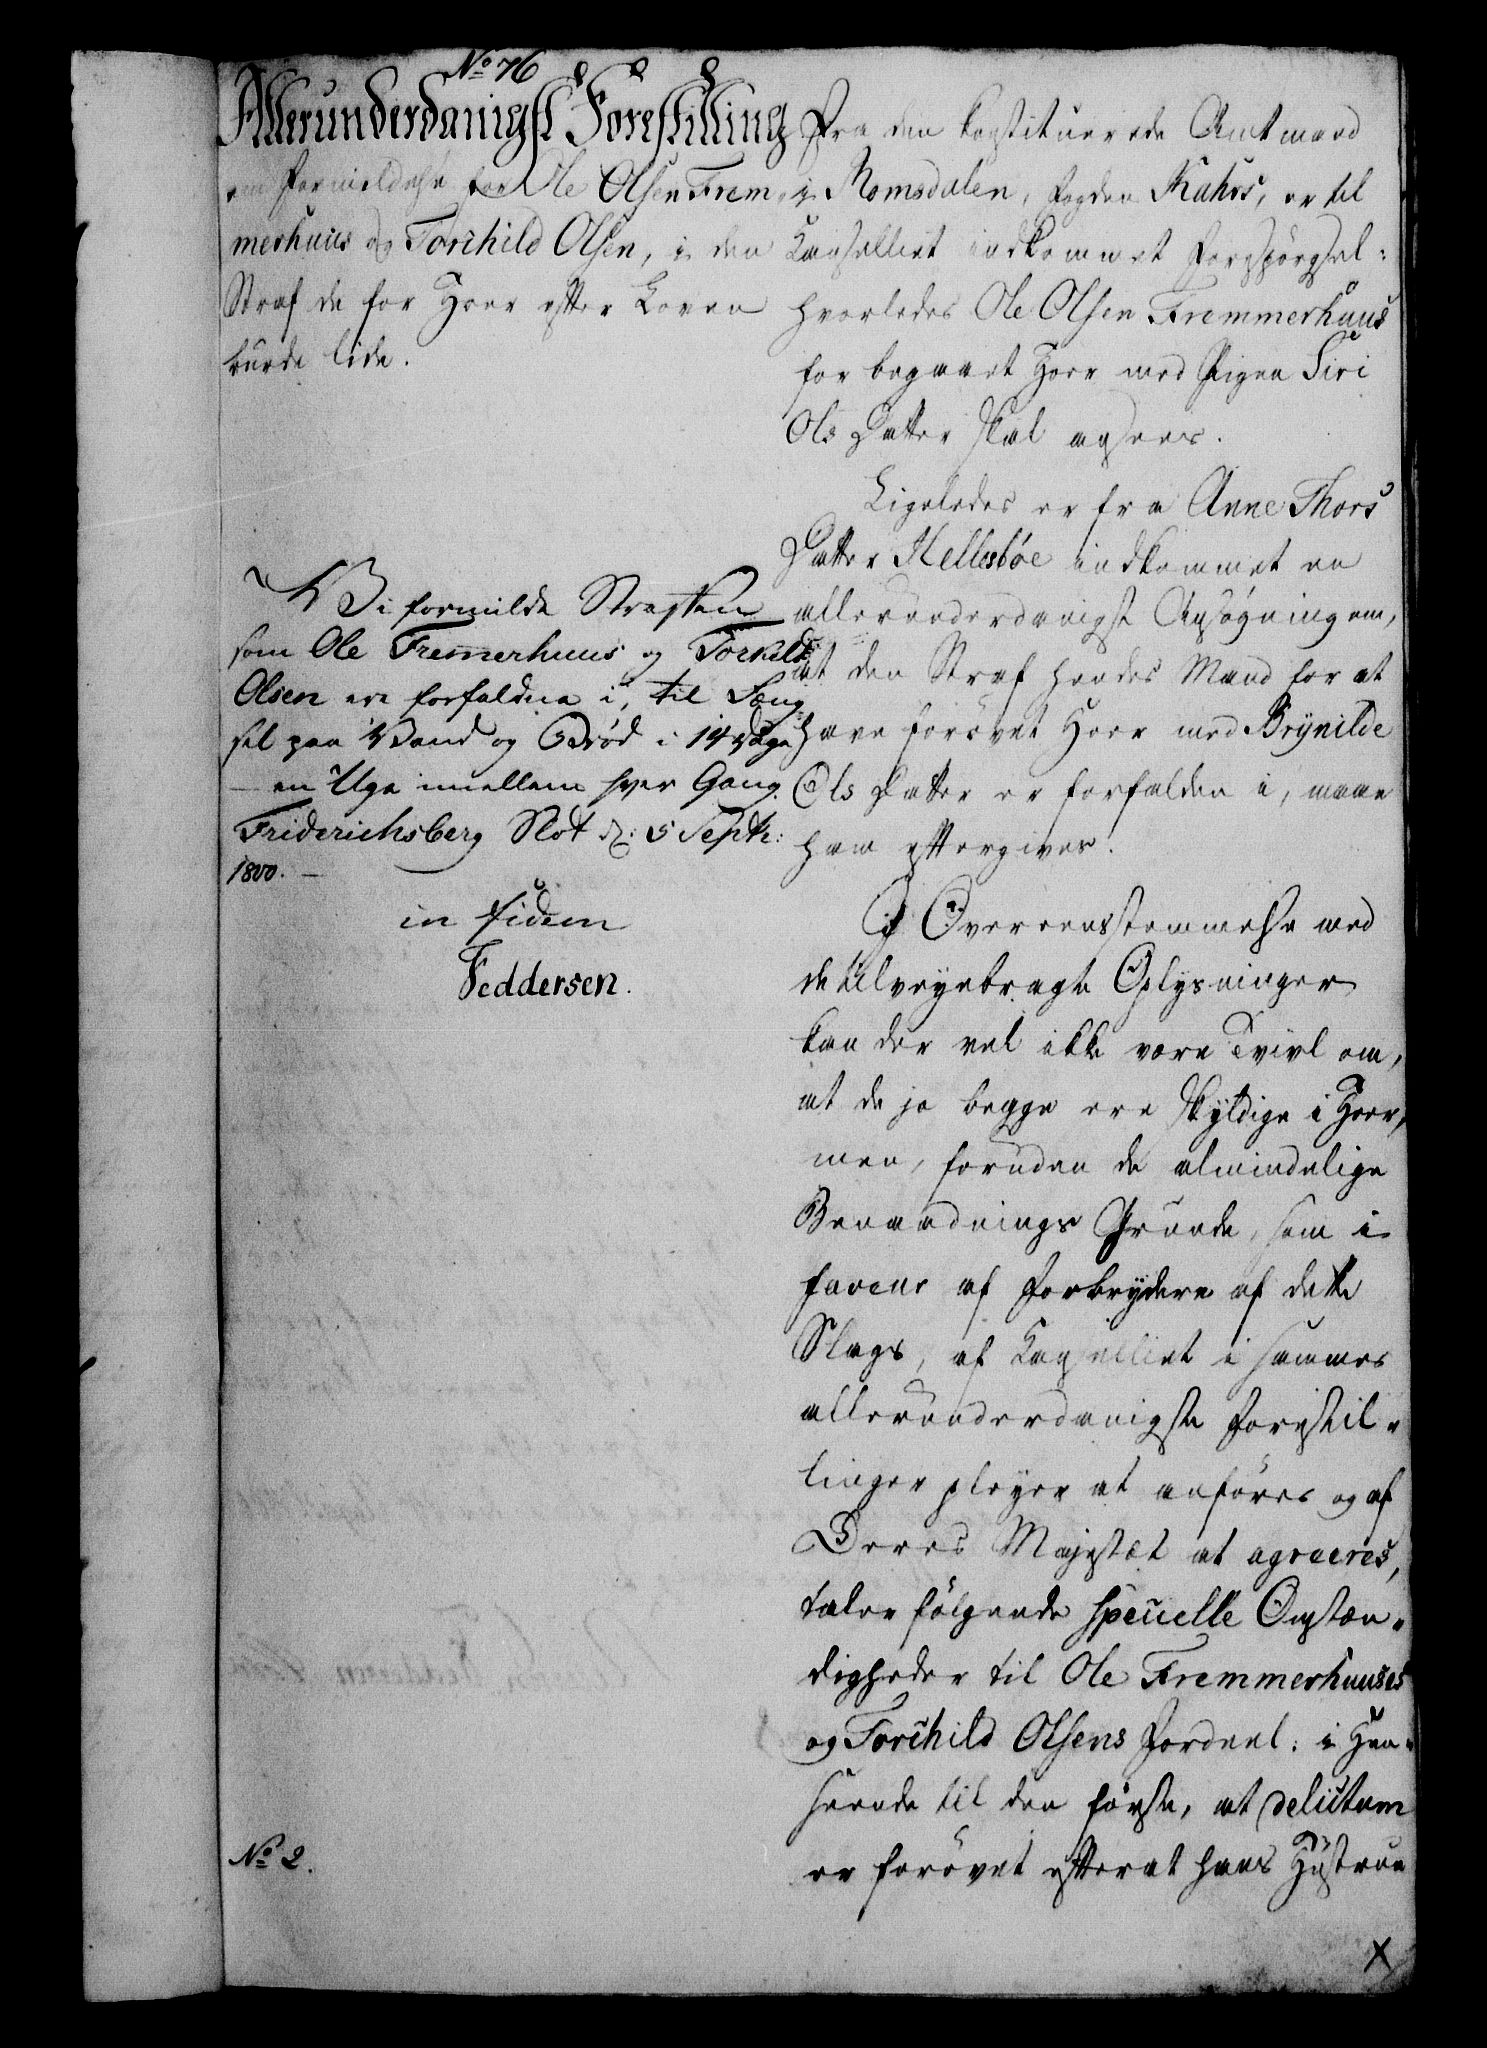 No 76
Allerunderdanigst Forestilling
om Formildelse for Ole Olsen Frem-
merhuus og Torchild Olsen, i den
Straf de for Hoer efter Loven
burde lide.
Vi formilde Straffen
som Ole Fremmerhuus og Torkild
Olsen ere forfaldne i, til Fæng-
sel paa Vand og Brød i 14 Dage
en Uge imellem hver Gang.
Friderichsberg Slot d: 5 Septr:
1800.
in fidem
Feddersen.
No 2.
Fra den constituerede Amtmand
i Romsdalen, Fogden Kahrs, er til
Cancelliet indkommet Forespørgsel:
hvorledes Ole Olsen Fremmerhuus
for begaaet Hoer med Pigen Siri
Ols Datter skal ansees.
Ligeledes er fra Anne Thors
Datter Hellesbøe indkommet en
allerunderdanigst Ansøgning om,
at den Straf hendes Mand for at
have forøvet Hoer med Brynilde
Ols Datter er forfalden i, maae
ham eftergives.
I Overeensstemmelse med
de tilveyebragte Oplysninger
kan der vel ikke være Tvivl om,
at de jo begge ere skyldige i Hoer,
men, foruden de almindelige
Benaadnings Grunde, som i
faveur af Forbrydere af dette
Slags, af Cancelliet i sammes
allerunderdanigste Forestil-
linger pleyer at anføres og af
Deres Majestæt at agreeres,
taler følgende specielle Omstæn-
digheder til Ole Fremmerhuuses
og Torchild Olsens Fordeel: i Hen-
seende til den første, at delictum
er forøvet efterat hans Hustrue
X